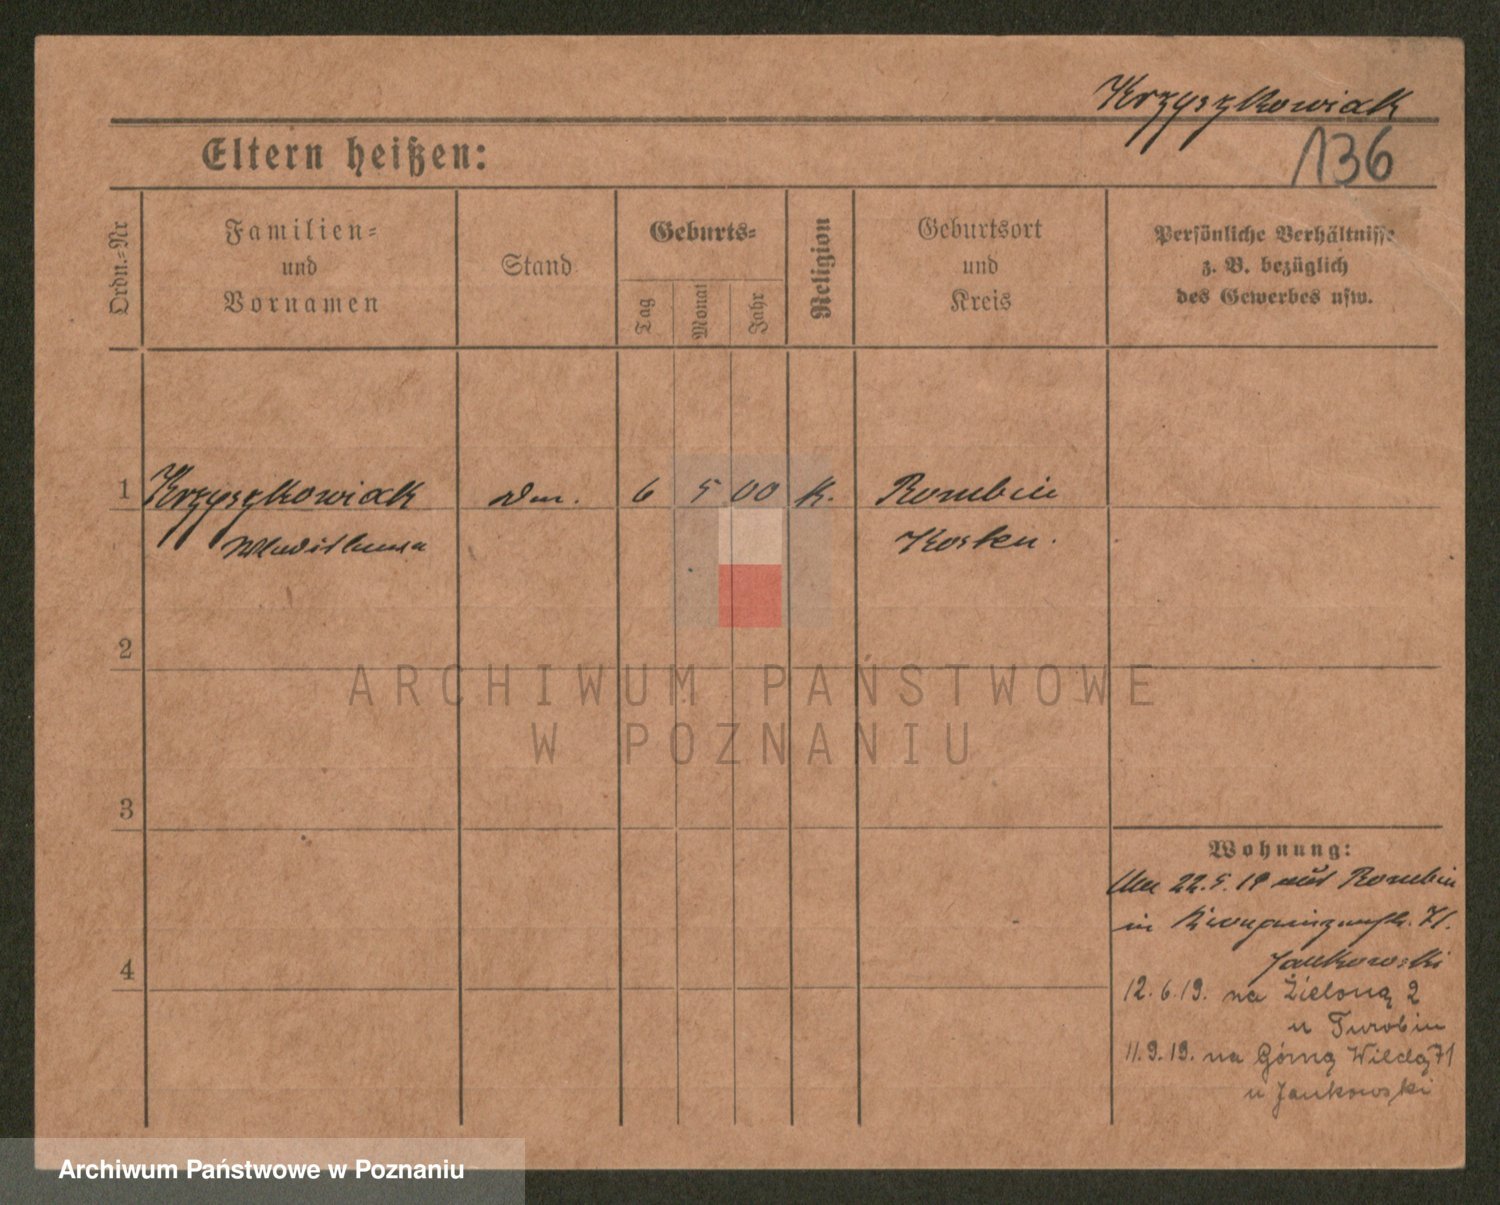 Krzyszkowiak
136
Eltern heißen:
Ordn.-Nr
Familien-
und
Vornamen
Stand
Geburts-
Tag
Monat
Jahr
Religion
Geburtsort
und
Kreis
Persönliche Verhältnisse
z. B. bezüglich
des Gewerbes usw.
1 Krzyszkowiak 6 5 00 K. Rombin
Wladislawa Kosten.
2
ARCHIWUM PAŃSTWOWE
W POZNANIU
3
Wohnung:
22.5.19 aus Rombin
in Kronprinzenstr. 71.
Jankowski
4
12.6.19. na Zieloną 2
u Turobin
11.9.19. na Górną Wildę 71
u Jankowski
Archiwum Państwowe w Poznaniu